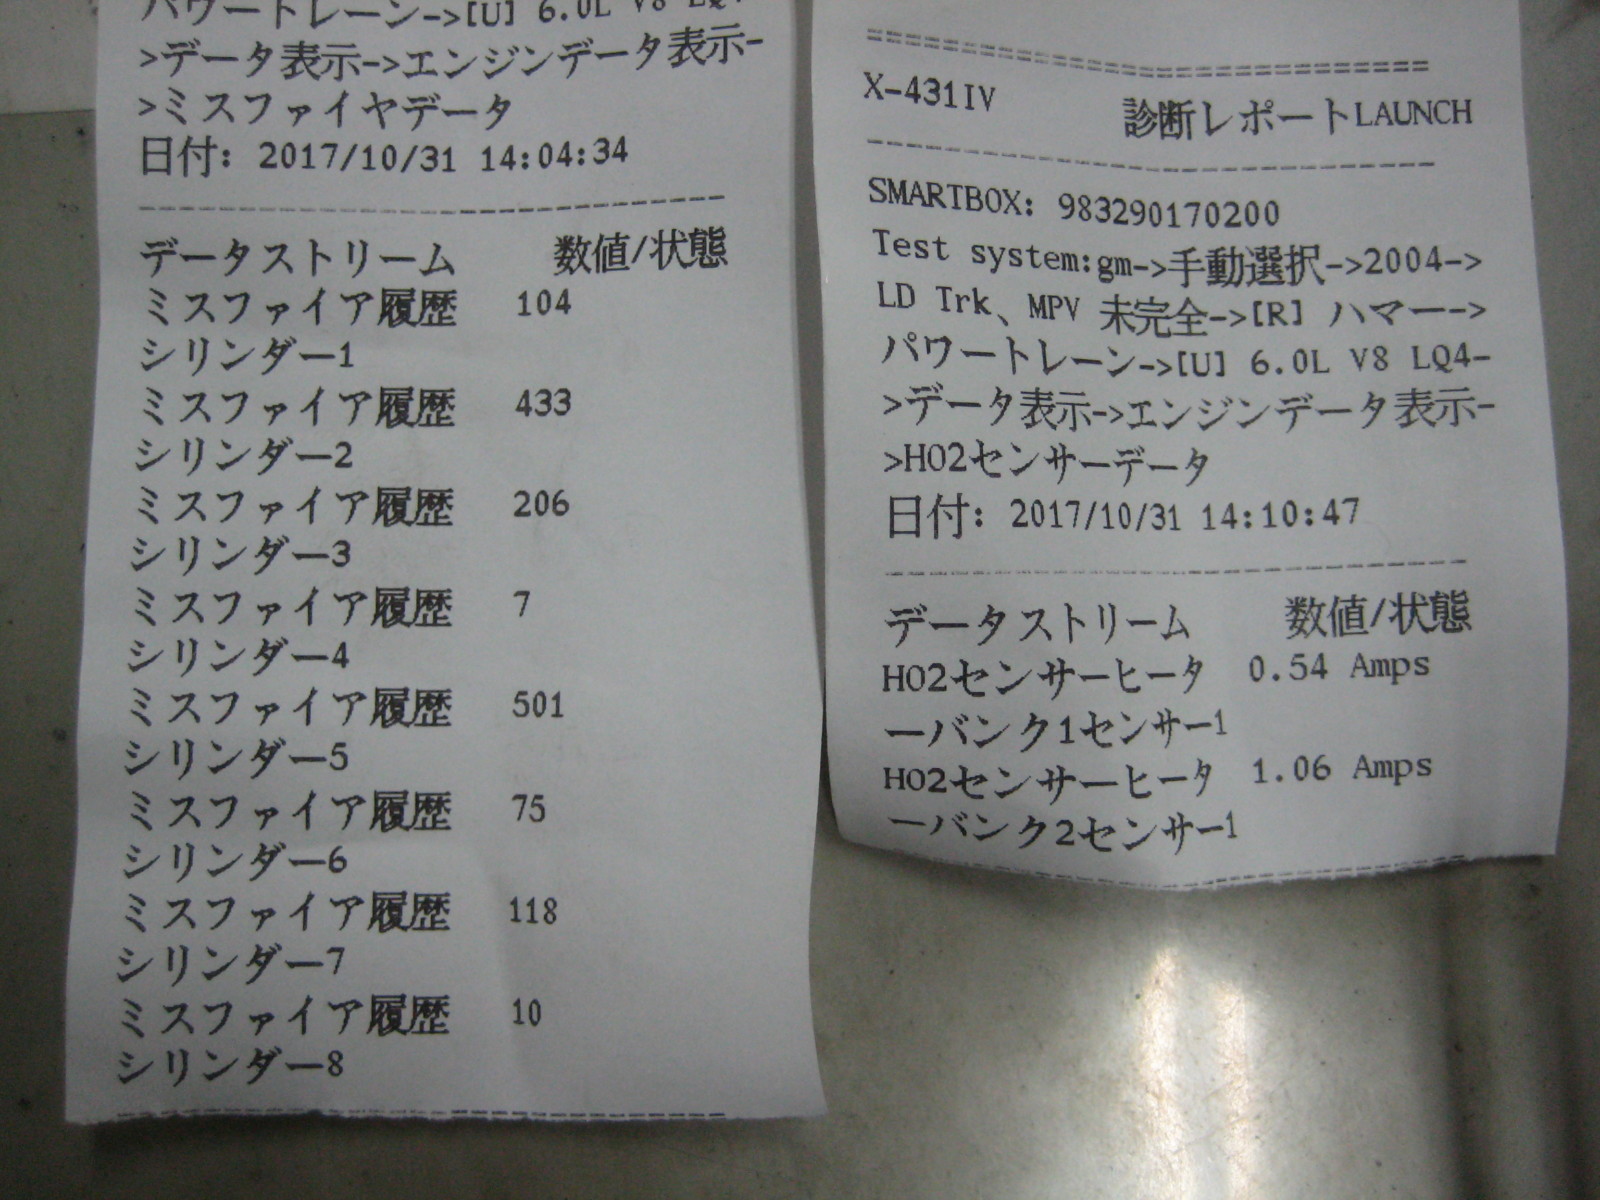 パワートレーン->[U] 6.0L V8 LQ4-
>データ表示->エンジンデータ表示-
>ミスファイヤデータ
日付: 2017/10/31 14:04:34
データストリーム 数値/状態
ミスファイア履歴 104
シリンダー1
ミスファイア履歴 433
シリンダー2
ミスファイア履歴 206
シリンダー3
ミスファイア履歴 7
シリンダー4
ミスファイア履歴 501
シリンダー5
ミスファイア履歴 75
シリンダー6
ミスファイア履歴 118
シリンダー7
ミスファイア履歴 10
シリンダー8
X-431IV 診断レポートLAUNCH
SMARTBOX: 983290170200
Test system:gm->手動選択->2004->
LD Trk、MPV 未完全->[R] ハマー->
パワートレーン->[U] 6.0L V8 LQ4-
>データ表示->エンジンデータ表示-
>HO2センサーデータ
日付: 2017/10/31 14:10:47
データストリーム 数値/状態
HO2センサーヒータ 0.54 Amps
ーバンク1センサー1
HO2センサーヒータ 1.06 Amps
ーバンク2センサー1